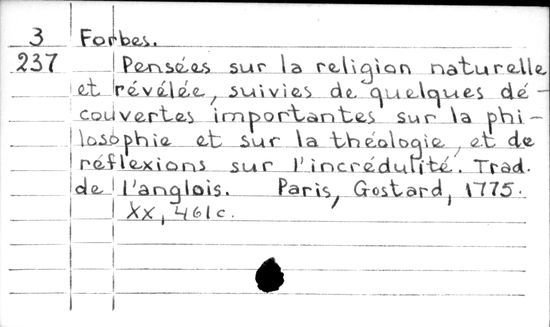 3 Forbes.
237 Pensées sur la religion naturelle
et révélée, suivies de quelques dé-
couvertes importantes sur la phi-
losophie et sur la théologie, et de
réflexions sur l'incrédulité. Trad.
de l'anglois. Paris, Gostard, 1775.
XX, 461c.